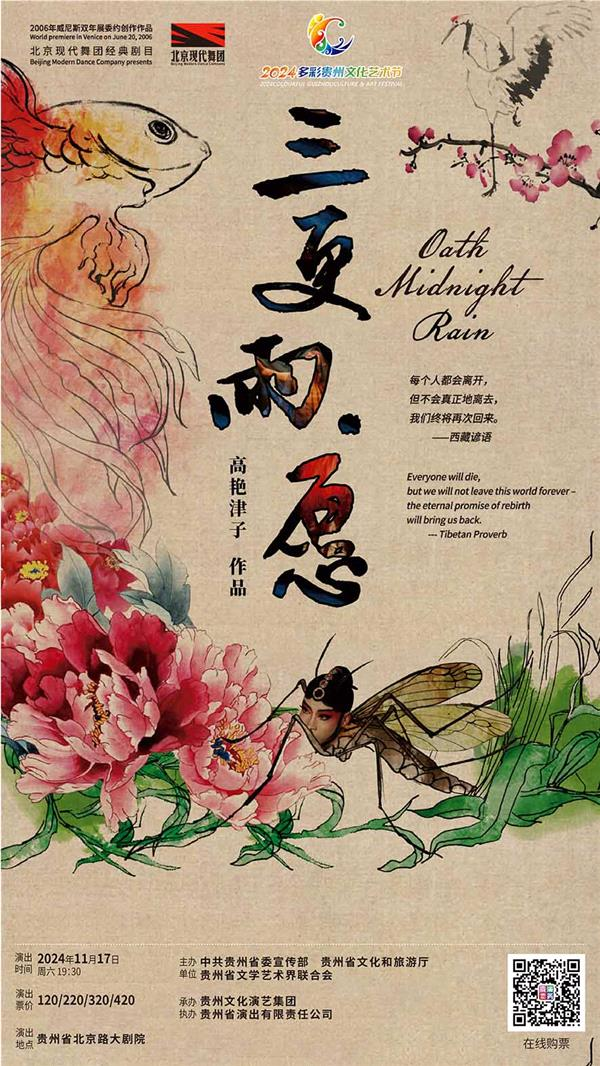 2006年威尼斯双年展委约创作作品
World premiere in Venice on June 20, 2006
北京现代舞团经典剧目
Beijing Modern Dance Company presents
北京现代舞团
Beijing Modern Dance Company
2024多彩贵州文化艺术节
2024COLOURFUL GUIZHOUCULTURE & ART FESTIVAL
三更雨·愿
Oath
Midnight
Rain
每个人都会离开，
但不会真正地离去，
我们终将再次回来。
——西藏谚语
高艳津子 作品
Everyone will die,
but we will not leave this world forever –
the eternal promise of rebirth
will bring us back.
--- Tibetan Proverb
演出时间 2024年11月17日
周六 19:30
演出票价 120/220/320/420
演出地点 贵州省北京路大剧院
主办单位 中共贵州省委宣传部 贵州省文化和旅游厅
贵州省文学艺术界联合会
承办 贵州文化演艺集团
执办 贵州省演出有限责任公司
在线购票